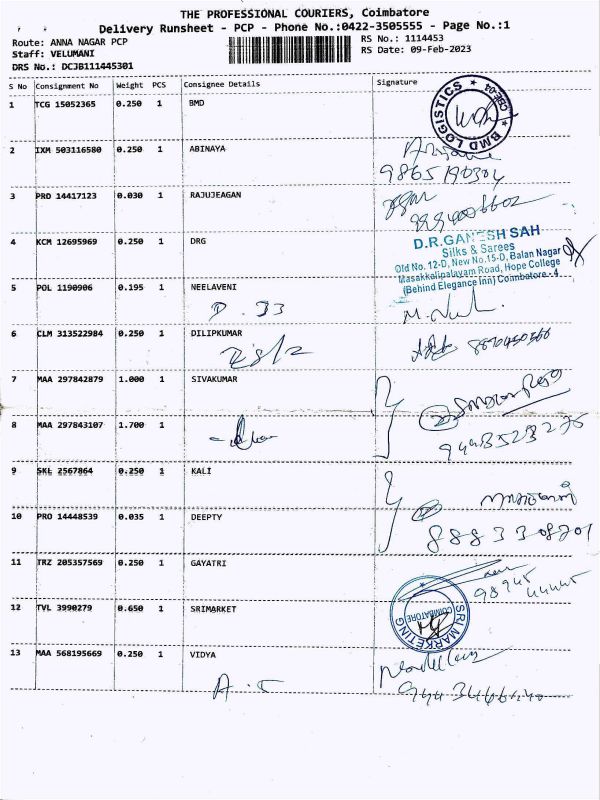 THE PROFESSIONAL COURIERS, Coimbatore
Delivery Runsheet - PCP - Phone No.:0422-3505555 - Page No.:1
Route: ANNA NAGAR PCP
RS No.: 1114453
Staff: VELUMANI
RS Date: 09-Feb-2023
DRS No.: DCJB111445301
S No Consignment No Weight PCS Consignee Details Signature
1 TCG 15052365 0.250 1 BMD
BMD LOGISTICS ★ CBE-04 ★
2 IXM 503116580 0.250 1 ABINAYA
9865190304
3 PRO 14417123 0.030 1 RAJUJEAGAN
4 KCM 12695969 0.250 1 DRG
D.R.GANESH SAH
Silks & Sarees
Old No. 12-D, New No.15-D, Balan Nagar
Masakkalipalayam Road, Hope College
(Behind Elegance Inn) Coimbatore - 4
5 POL 1190906 0.195 1 NEELAVENI
6 CLM 313522984 0.250 1 DILIPKUMAR
7 MAA 297842879 1.000 1 SIVAKUMAR
8 MAA 297843107 1.700 1
9 SKL 2567864 0.250 1 KALI
10 PRO 14448539 0.035 1 DEEPTY
11 TRZ 205357569 0.250 1 GAYATRI
98945 44445
12 TVL 3990279 0.650 1 SRIMARKET
SRI MARKETING ★ COIMBATORE
13 MAA 568195669 0.250 1 VIDYA